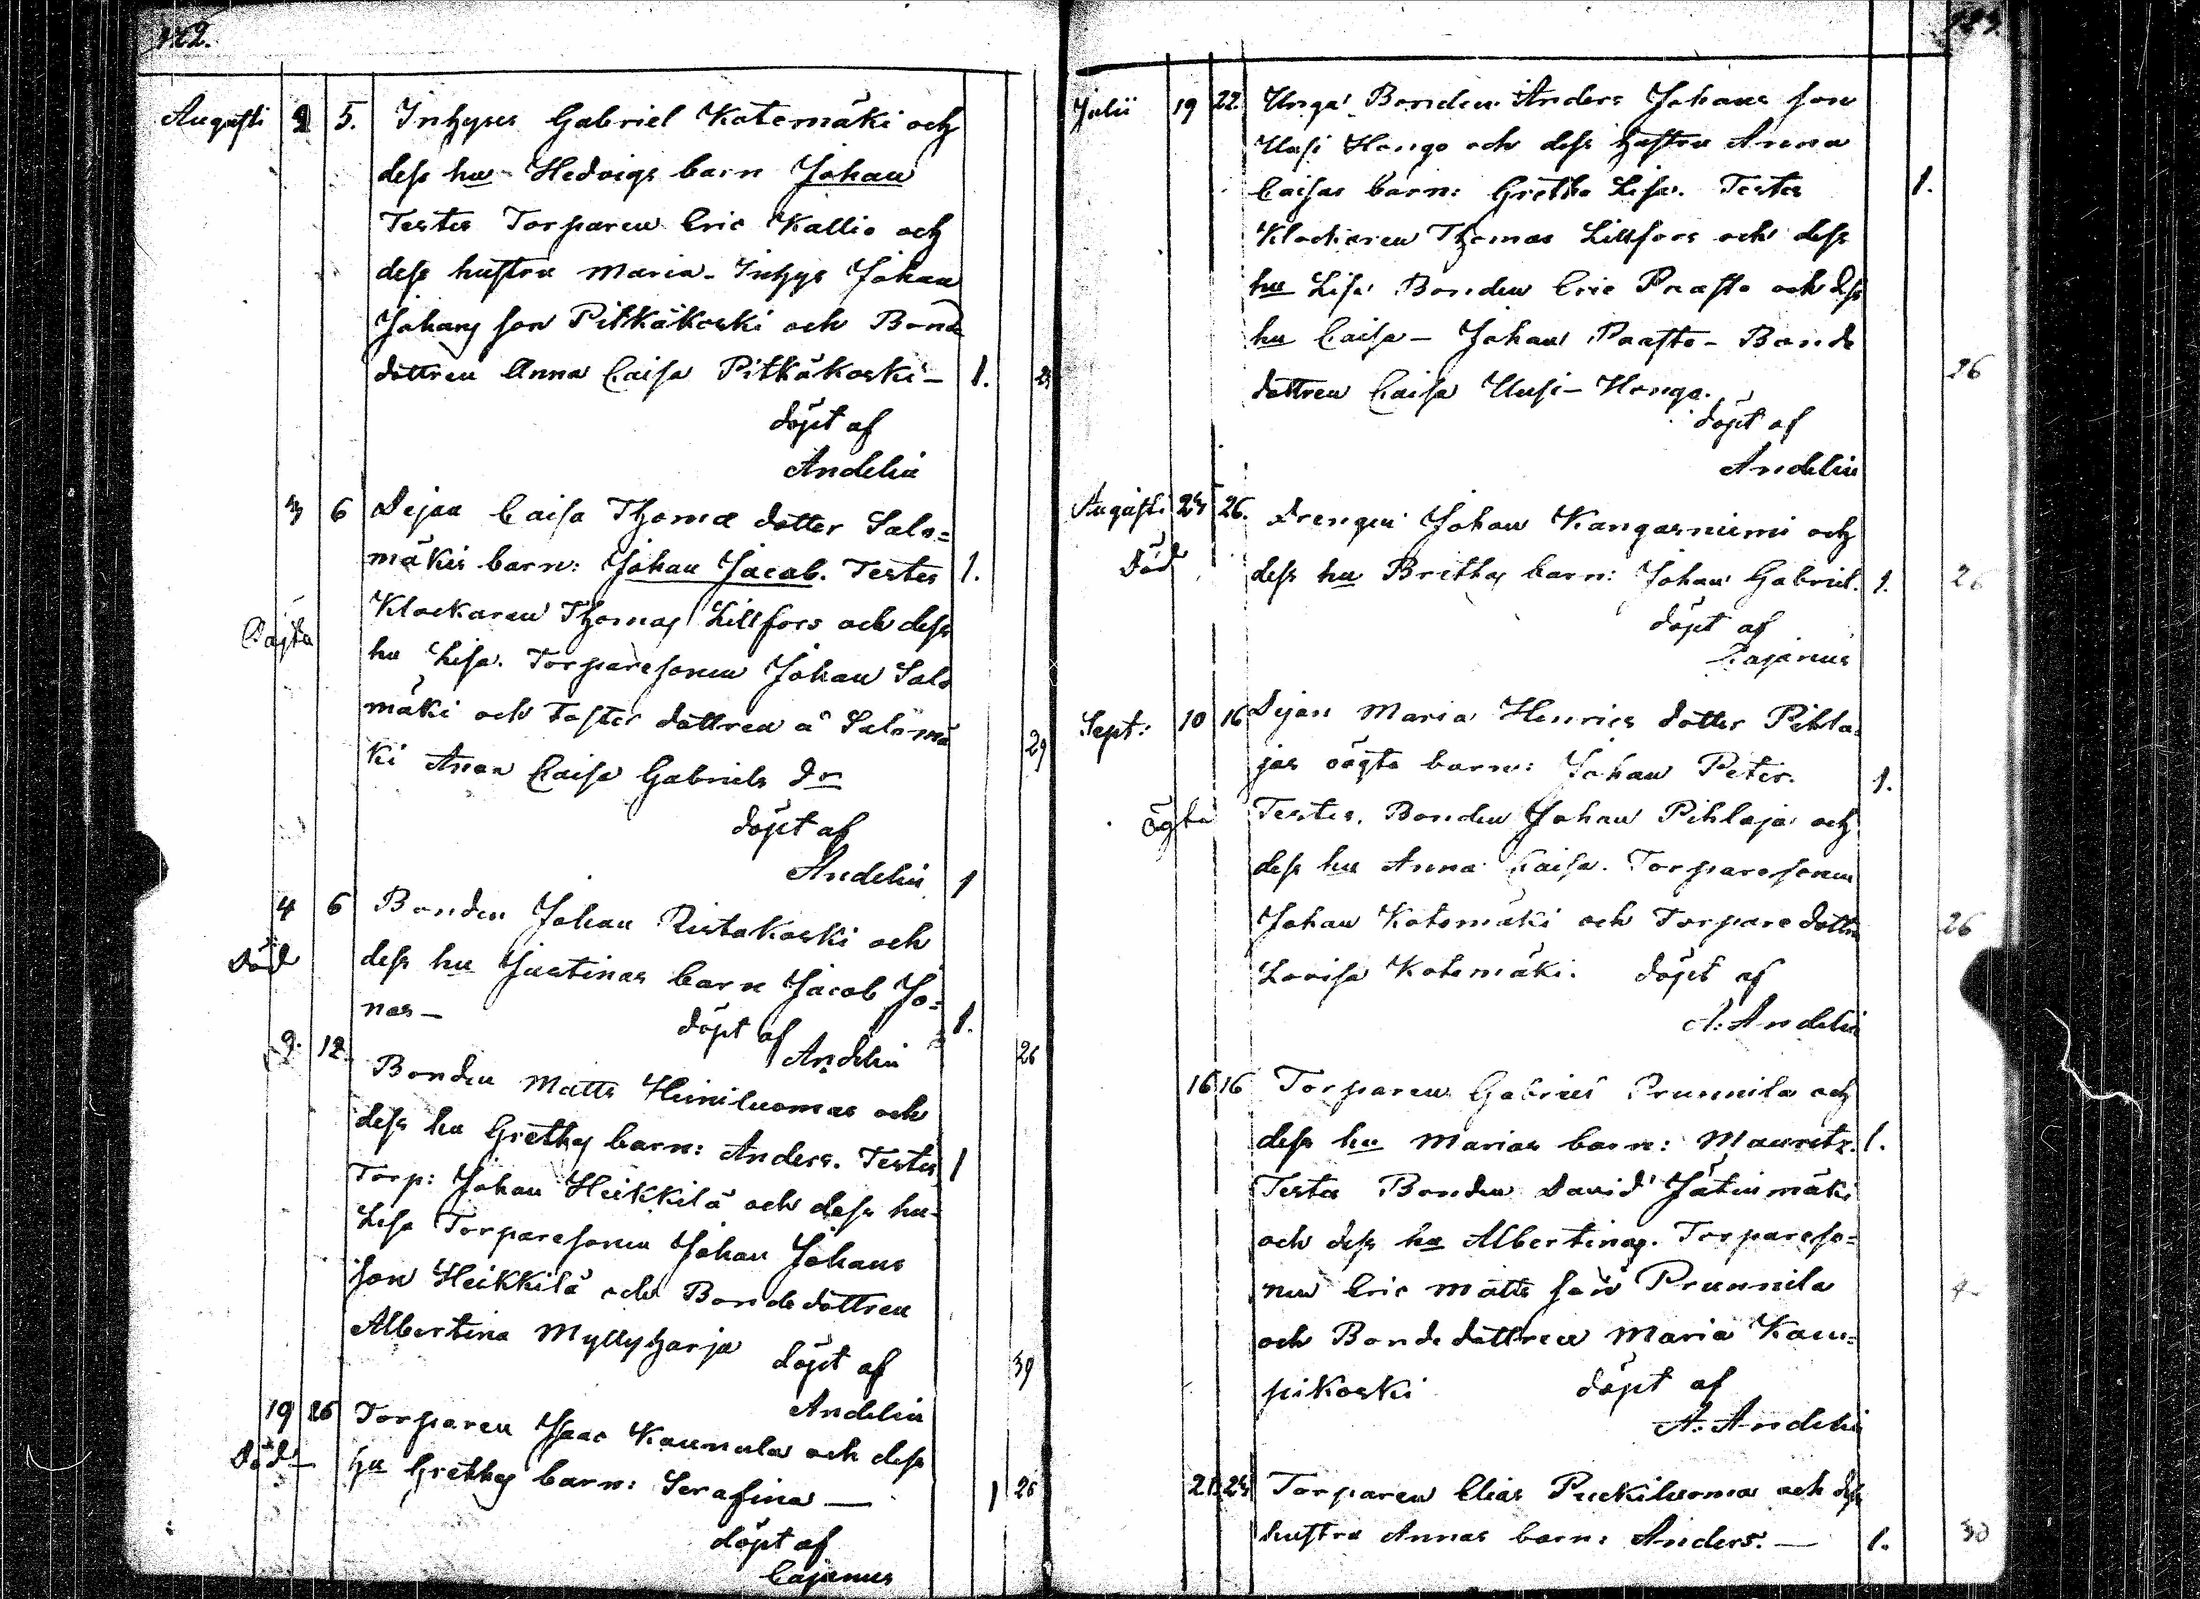 122.
Augusti 2 5. Inhyses Gabriel Katemäki och
dess hu Hedvigs barn Johan
Testes Torparen Eric Kallio och
dess hustru Maria - Inhys Johan
Johans son Pitkäkoski och Bonde
dottren Anna Caisa Pitkäkoski - 1.
döpt af
Andelin
3 6 Dejan Caisa Thomæ dotter Salo=
mäkis barn: Johan Jacob. Testes 1.
Klockaren Thomas Lillfors och dess
hu Lisa. Torparesonen Johan Salo
mäki och Foster dottren å Salomä
ki Anna Caisa Gabriels dr 29
döpt af
Andelin 1
4 6 Bonden Johan Ristakoski och
Död dess hu Justinas barn Jacob Jo=
nas - 1.
döpt af
Andelin 26
9. 12. Bonden Matts Heiniluomas och
dess hu Grethas barn: Anders. Testes 1
Torp: Johan Heikkilä och dess hu
Lisa Torparesonen Johan Johans
son Heikkilä och Bondedottren
Albertina Myllyharja
döpt af 39
Andelin
19 26 Torparen Isaac Kaunula och dess
Död hu Grethas barn: Serafina — 1 26
döpt af
Cajanus
123
Julii 19 22. Unga Bonden Anders Johans son
Uusi Hango och dess hustru Anna
Caisas barn: Gretha Lisa. Testes 1.
Klockaren Thomas Lillfors och dess
hu Lisa Bonden Eric Paasto och dess
hu Caisa - Johan Paasto - Bonde
dottren Caisa Uusi-Hango. 26
döpt af
Andelin
Augusti 24 26. Drengen Johan Kangasniemi och
Död dess hu Brithas barn: Johan Gabriel. 1. 26
döpt af
Cajanus
Sept: 10 16 Dejan Maria Henrics dotter Pihla=
jas oägta barn: Johan Peter. 1.
Testes. Bonden Johan Pihlaja och
dess hu Anna Caisa. Torparesonen
Johan Kotemäki och Torparedottren 26
Lovisa Kotemäki. döpt af
A. Andelin
16 16 Torparen Gabriel Prunnila och
dess hu Marias barn: Mauritz. 1.
Testes Bonden David Jätinmäki
och dess hu Albertinas. Torpareso=
nen Eric Matts son Prunnila
och Bondedottren Maria Kam=
pikoski döpt af
A. Andelin
21 24 Torparen Elias Puckiluoma och dess
hustru Annas barn: Anders. — 1. 30